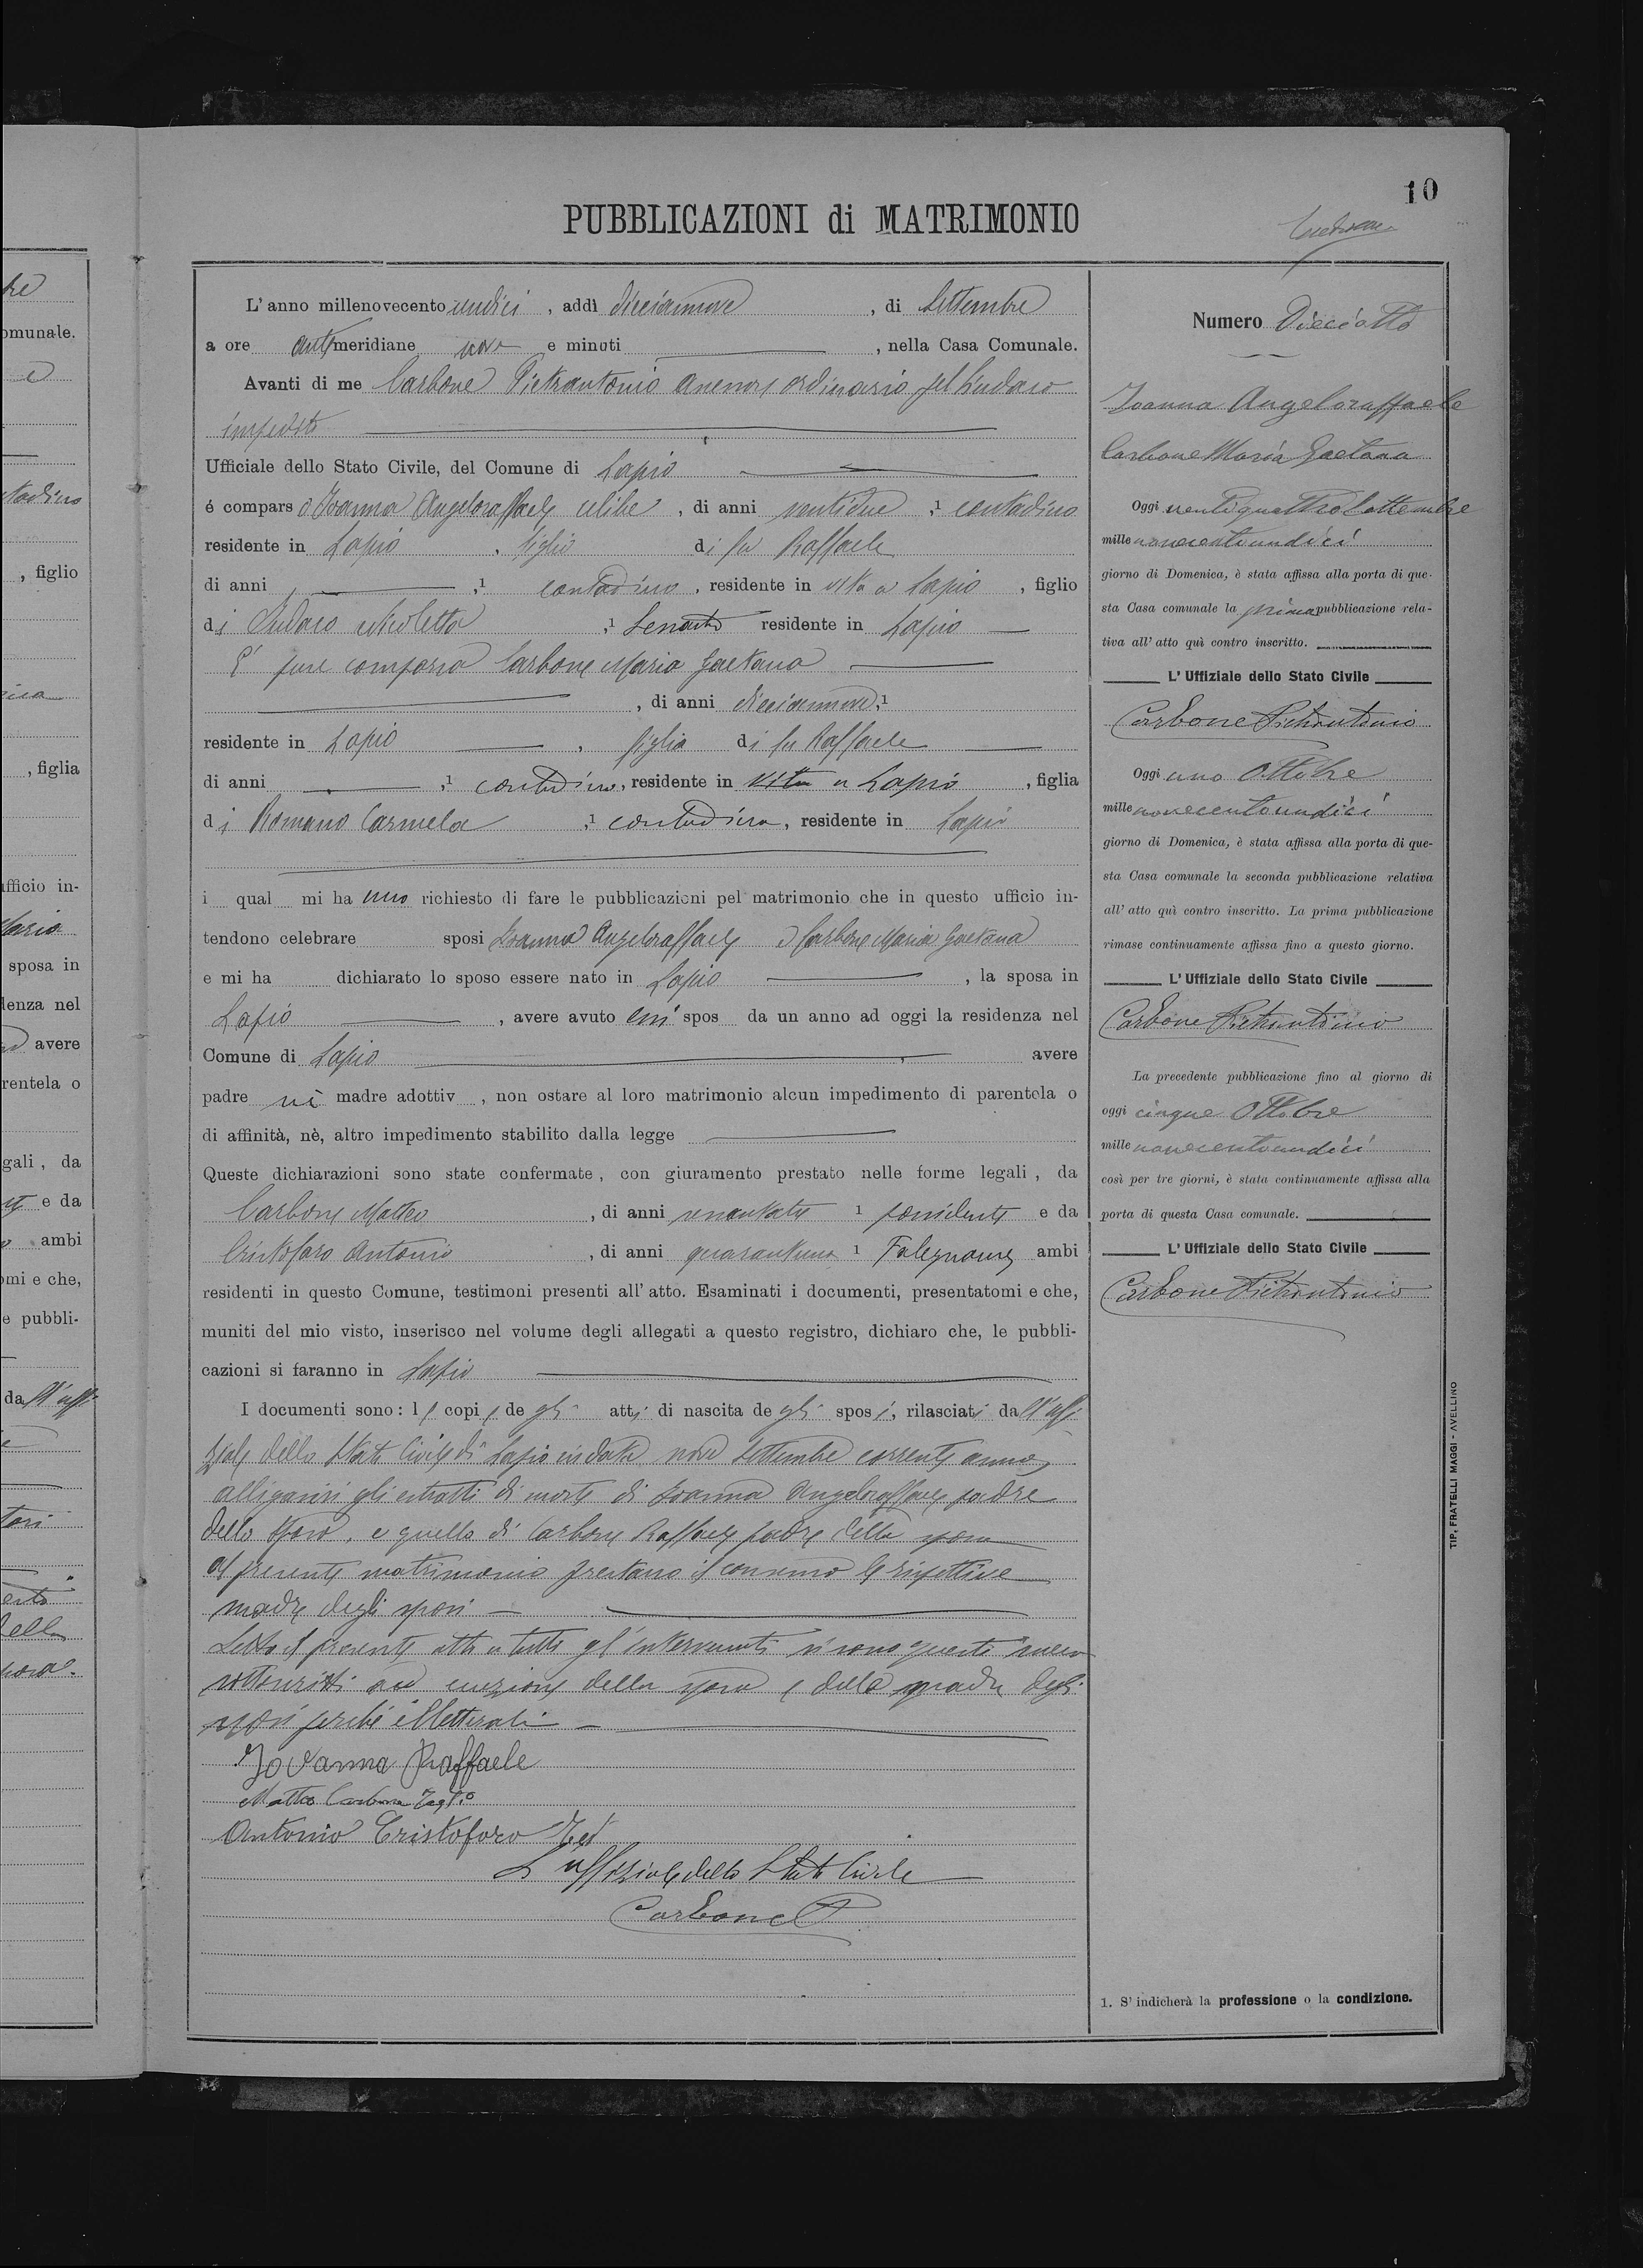 he
omunale.
tadino
, figlio
, figlia
ufficio in-
Maria
sposa in
denza nel
avere
rentela o
gali, da
e da
ambi
omi e che,
e pubbli-
da ll'uffi-
tori
della
10
PUBBLICAZIONI di MATRIMONIO
L'anno millenovecento undici, addì diecinnove, di Settembre
a ore antimeridiane nove e minuti, nella Casa Comunale.
Avanti di me Carbone Pietrantonio assessore ordinario pel Sindaco
impedito
Ufficiale dello Stato Civile, del Comune di Lapio
é comparso Ioanna Angeloraffaele celibe, di anni ventidue, 1 contadino
residente in Lapio, figlio di fu Raffaele
di anni, 1 contadino, residente in vita a Lapio, figlio
di Nicoletta, 1 residente in Lapio
E' pure comparsa Carbone Maria Gaetana
, di anni diecinnove, 1
residente in Lapio, figlia di fu Raffaele
di anni, 1 contadino, residente in vita a Lapio, figlia
di Romano Carmela, 1 contadina, residente in Lapio
i qual mi ha nno richiesto di fare le pubblicazioni pel matrimonio che in questo ufficio in-
tendono celebrare sposi Ioanna Angeloraffaele e Carbone Maria Gaetana
e mi ha dichiarato lo sposo essere nato in Lapio, la sposa in
Lapio, avere avuto essi spos da un anno ad oggi la residenza nel
Comune di Lapio avere
padre nè madre adottiv, non ostare al loro matrimonio alcun impedimento di parentela o
di affinità, nè, altro impedimento stabilito dalla legge
Queste dichiarazioni sono state confermate, con giuramento prestato nelle forme legali, da
Carbone Matteo, di anni 1 possidente e da
Cristofaro Antonio, di anni quarantuno 1 Falegname ambi
residenti in questo Comune, testimoni presenti all'atto. Esaminati i documenti, presentatomi e che,
muniti del mio visto, inserisco nel volume degli allegati a questo registro, dichiaro che, le pubbli-
cazioni si faranno in Lapio
I documenti sono: le copie de gli atti di nascita de gli sposi, rilasciati da ll'uffi-
ziale dello Stato Civile di Lapio in data nove Settembre corrente anno,
alligansi gli estratti di morte di Ioanna Angeloraffaele padre
dello sposo, e quello di Carbone Raffaele padre della sposa
al presente matrimonio prestano il consenso le rispettive
madre degli sposi
Letto il presente atto a tutti gl'intervenuti si sono questi meco
sottoscritti ad eccezione della sposa e delle madre degli
sposi perché illetterati
Jovanna Raffaele
Matteo Carbone
Antonio Cristoforo Tes
L'uffiziale dello Stato Civile
Carbone P
Numero Dieciotto
Ioanna Angeloraffaele
Carbone Maria Gaetana
Oggi ventiquattro Settembre
mille novecentoundici
giorno di Domenica, è stata affissa alla porta di que-
sta Casa comunale la prima pubblicazione rela-
tiva all'atto quì contro inscritto.
L'Uffiziale dello Stato Civile
Carbone Pietrantonio
Oggi uno Ottobre
mille novecentoundici
giorno di Domenica, è stata affissa alla porta di que-
sta Casa comunale la seconda pubblicazione relativa
all'atto quì contro inscritto. La prima pubblicazione
rimase continuamente affissa fino a questo giorno.
L'Uffiziale dello Stato Civile
Carbone Pietrantonio
La precedente pubblicazione fino al giorno di
oggi cinque Ottobre
mille novecentoundici
così per tre giorni, è stata continuamente affissa alla
porta di questa Casa comunale.
L'Uffiziale dello Stato Civile
Carbone Pietrantonio
TIP. FRATELLI MAGGI - AVELLINO
1. S'indicherà la professione o la condizione.